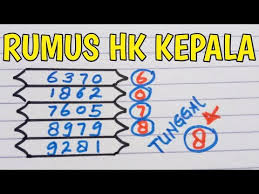 RUMUS HK KEPALA
6370 6
1862 0
7605 7
8979 8
9281
TUNGGAL
8